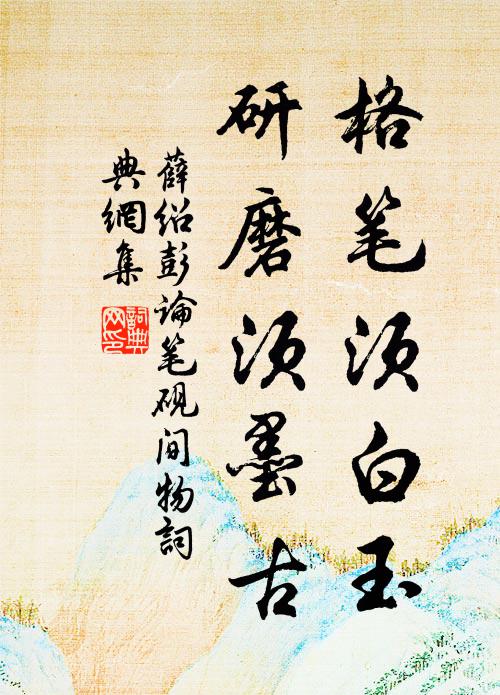 格笔须白玉
研磨须墨古
薛绍彭论笔砚间物词
典網集
詞典
网印